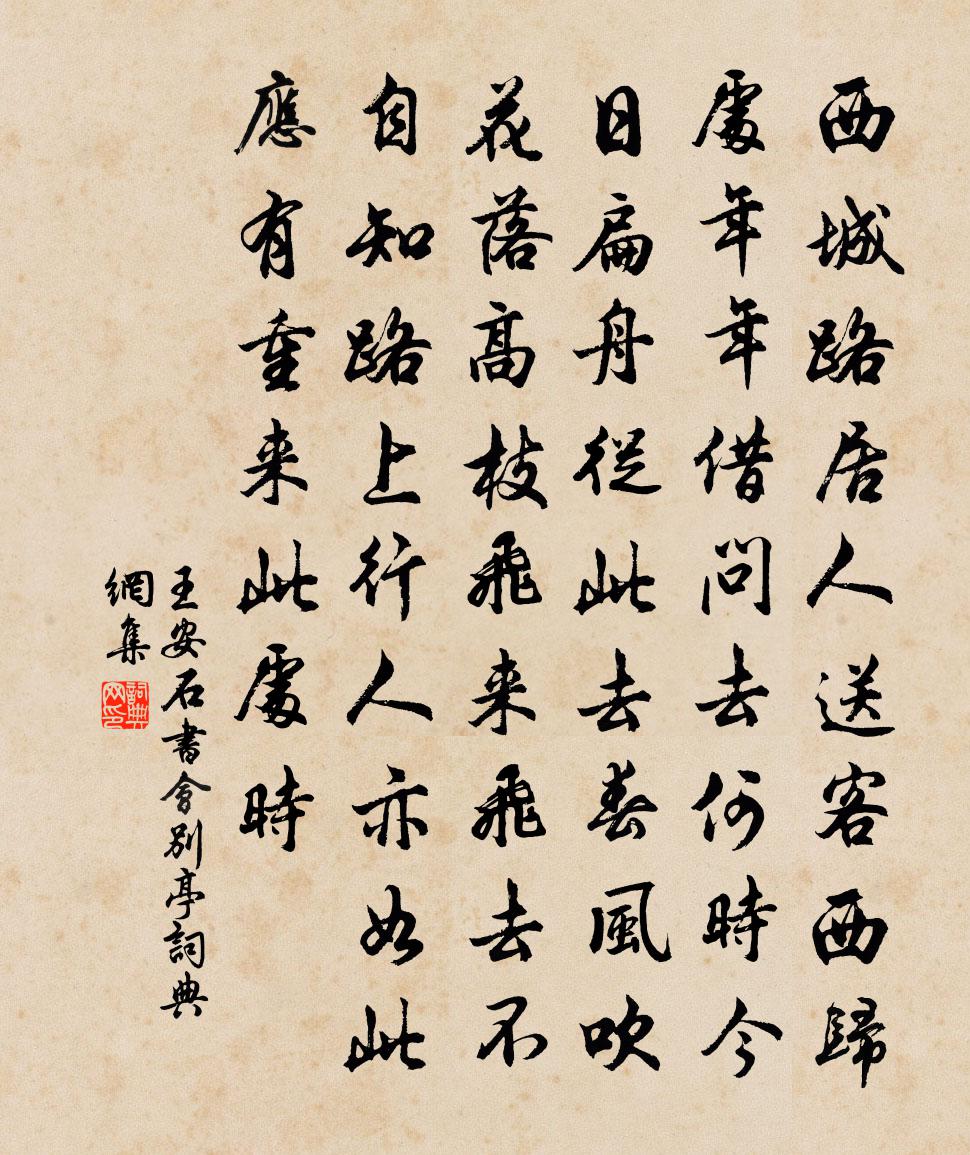 西城路居人送客西歸
處年年借問去何時今
日扁舟從此去春風吹
花落高枝飛来飛去不
自知路上行人亦如此
應有重来此處時
王安石書會別亭詞典
網集
詞典网印